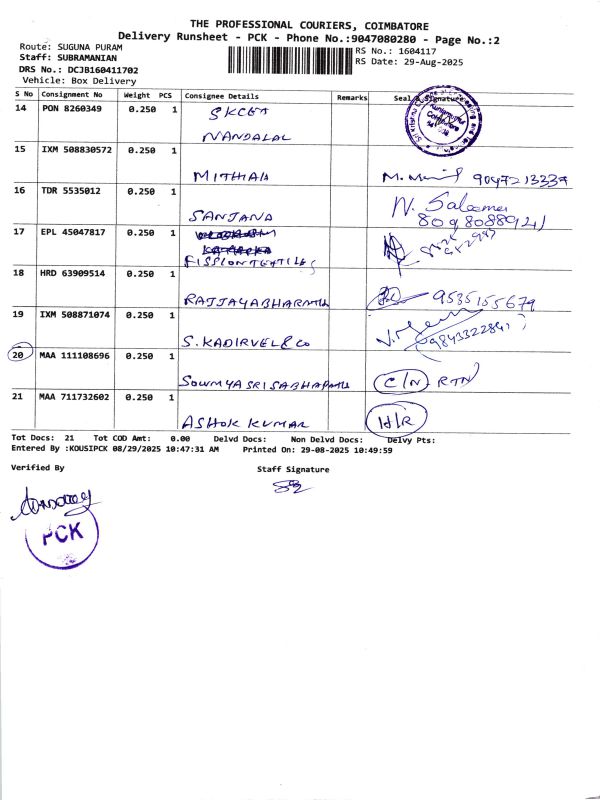 THE PROFESSIONAL COURIERS, COIMBATORE
Delivery Runsheet - PCK - Phone No.:9047080280 - Page No.:2
Route: SUGUNA PURAM
RS No.: 1604117
Staff: SUBRAMANIAN
RS Date: 29-Aug-2025
DRS No.: DCJB160411702
Vehicle: Box Delivery
S No Consignment No Weight PCS Consignee Details Remarks Seal & Signature
14 PON 8260349 0.250 1 SKCET
NANDALAL
15 IXM 508830572 0.250 1
MITHIAH 9047213337
16 TDR 5535012 0.250 1
SANJANA N. Saloomei
8098088941
17 EPL 45047817 0.250 1
FISSIONTEXTILES
18 HRD 63909514 0.250 1
RAJJAYABHARATHI 9535155679
19 IXM 508871074 0.250 1
S. KADIRVEL & CO 9843322841
20 MAA 111108696 0.250 1
SOWMYASRISABHAPATHI C/N RTN
21 MAA 711732602 0.250 1
ASHOK KUMAR H/R
Tot Docs: 21 Tot COD Amt: 0.00 Delvd Docs: Non Delvd Docs: Delvy Pts:
Entered By :KOUSIPCK 08/29/2025 10:47:31 AM Printed On: 29-08-2025 10:49:59
Verified By Staff Signature
PCK